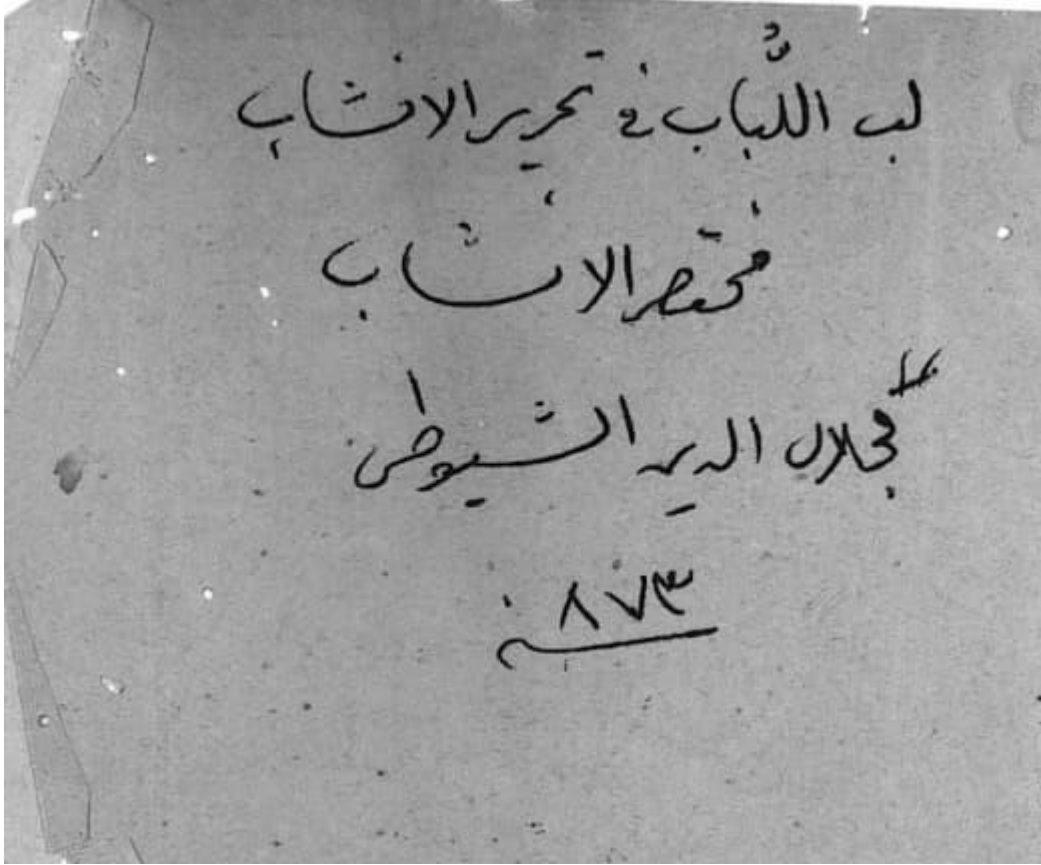 لب اللُّباب في تحرير الانساب
مختصر الانساب
لجلال الدين السيوطي
٨٧٣